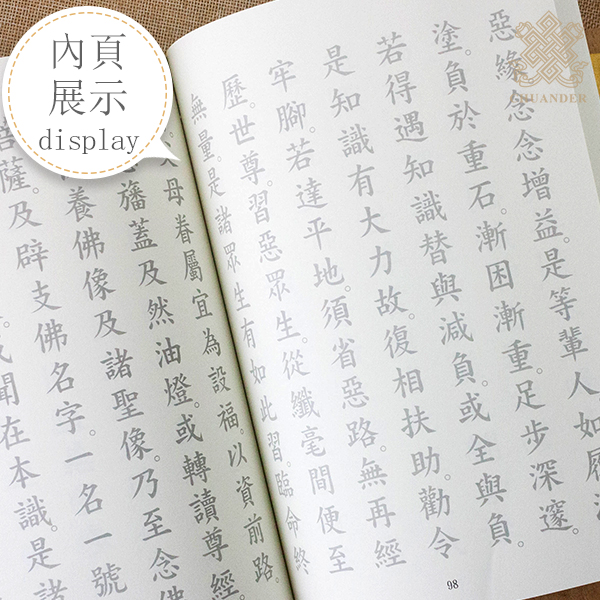 內頁
展示
display
CHUANDER
惡緣念念增益。是等輩人如履
塗。負於重石。漸困漸重。足步深邃。
若得遇知識。替與減負。或全與負。
是知識有大力故。復相扶助。勸令
牢腳。若達平地。須省惡路。無再經
歷。世尊。習惡眾生。從纖毫間便至
無量。是諸眾生有如此習。臨命終
母眷屬宜為設福。以資前路。
旛蓋及然油燈。或轉讀尊經。
養佛像及諸聖像。乃至念佛
菩薩。及辟支佛名字。一名一號
聞在本識。是諸
98